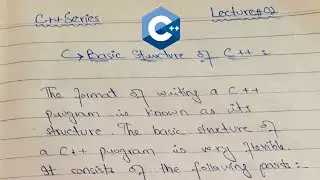 C++ Series
Lecture#02
C++
Basic Structure of C++ :
The format of writing a C++
program is known as its
structure. The basic structure of
a C++ program is very flexible.
It consists of the following parts:-